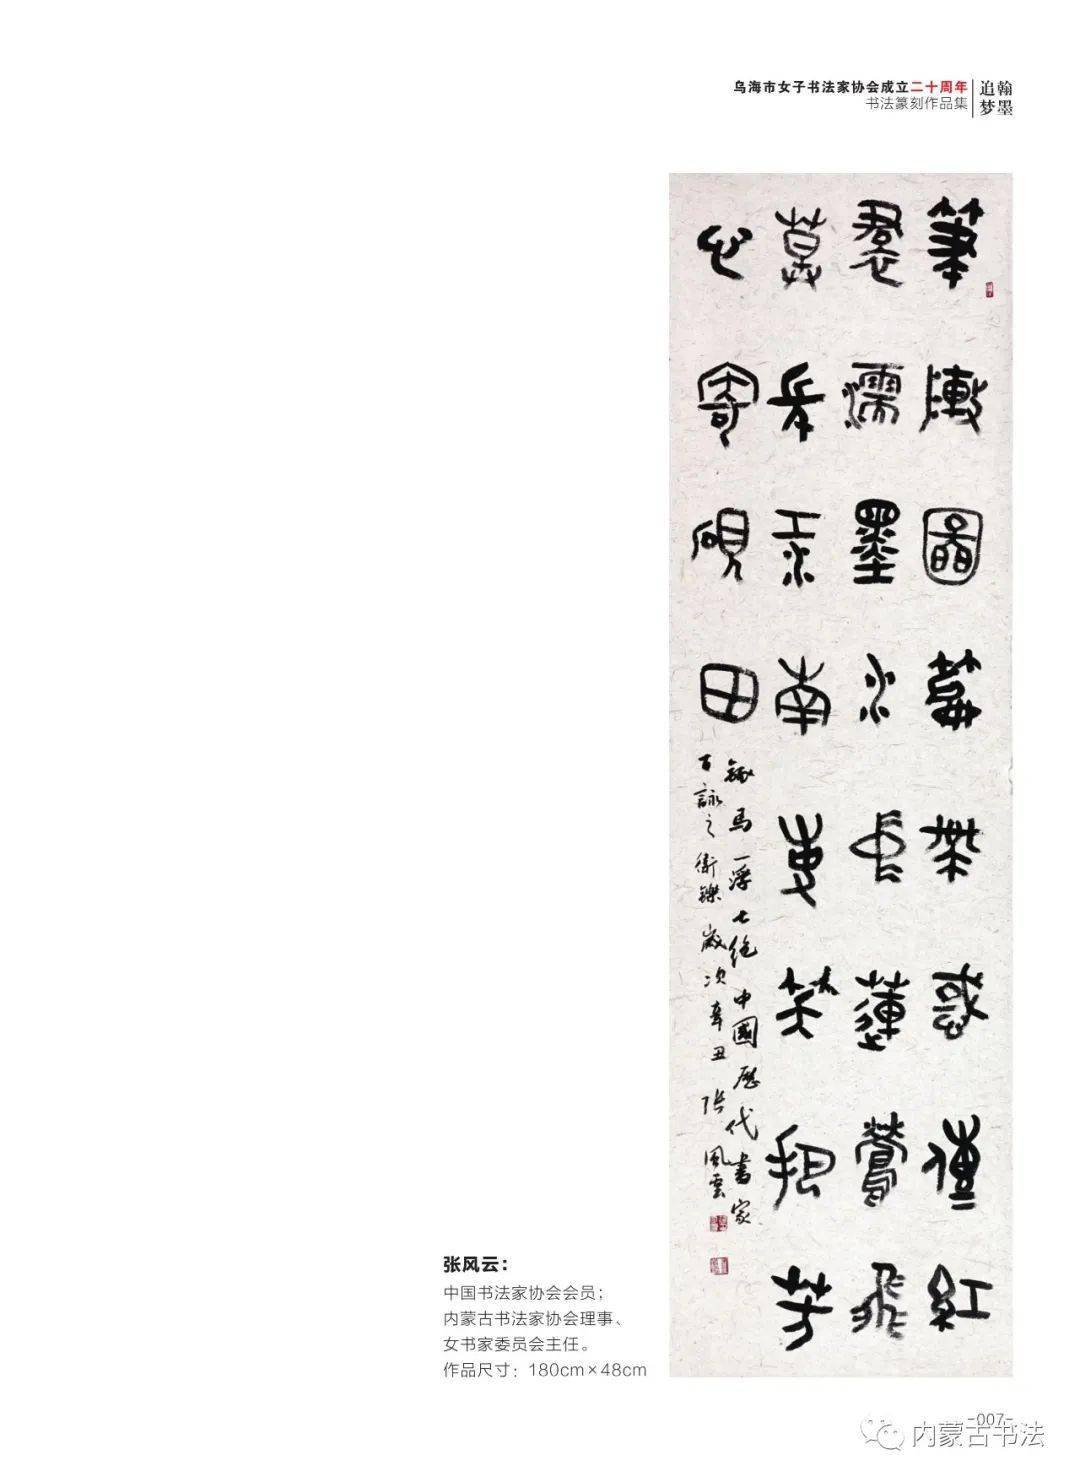 乌海市女子书法家协会成立二十周年
书法篆刻作品集
翰墨
追梦
筆陣圖惑傳紅
裙濡墨水蓮鶯飛
草長江南笑把芳
心寄硯田
錄馬一浮七絶中國歷代書家
百詠之衛鑠歲次辛丑張風雲
张风云：
中国书法家协会会员；
内蒙古书法家协会理事、
女书家委员会主任。
作品尺寸：180cm×48cm
-007-
内蒙古书法